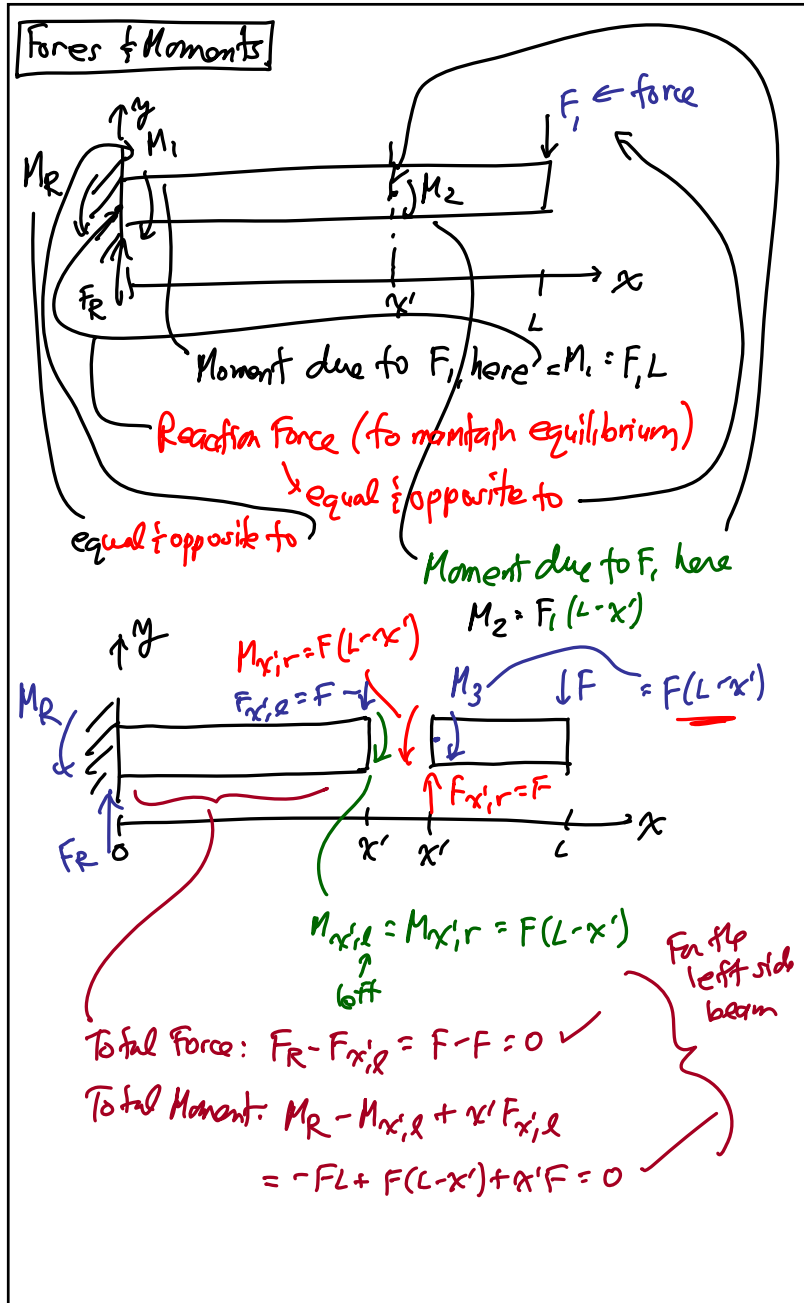 Fores & Moments
y
F₁ ← force
M₁
M_R
M₂
F_R
x' L x
Moment due to F₁ here = M₁ = F₁L
Reaction Force (to mantain equilibrium)
equal & opposite to
equal & opposite to
Moment due to F₁ here
M₂ = F₁(L-x')
y
M_x',r = F(L-x')
M_R F_x',l = F M₃ F = F(L-x')
F_x',r = F
F_R 0 x' x' L x
M_x',l = M_x',r = F(L-x')
left
For the
left side
beam
Total Force: F_R - F_x',l = F - F = 0 ✓
Total Moment: M_R - M_x',l + x' F_x',l
= -FL + F(L-x') + x'F = 0 ✓